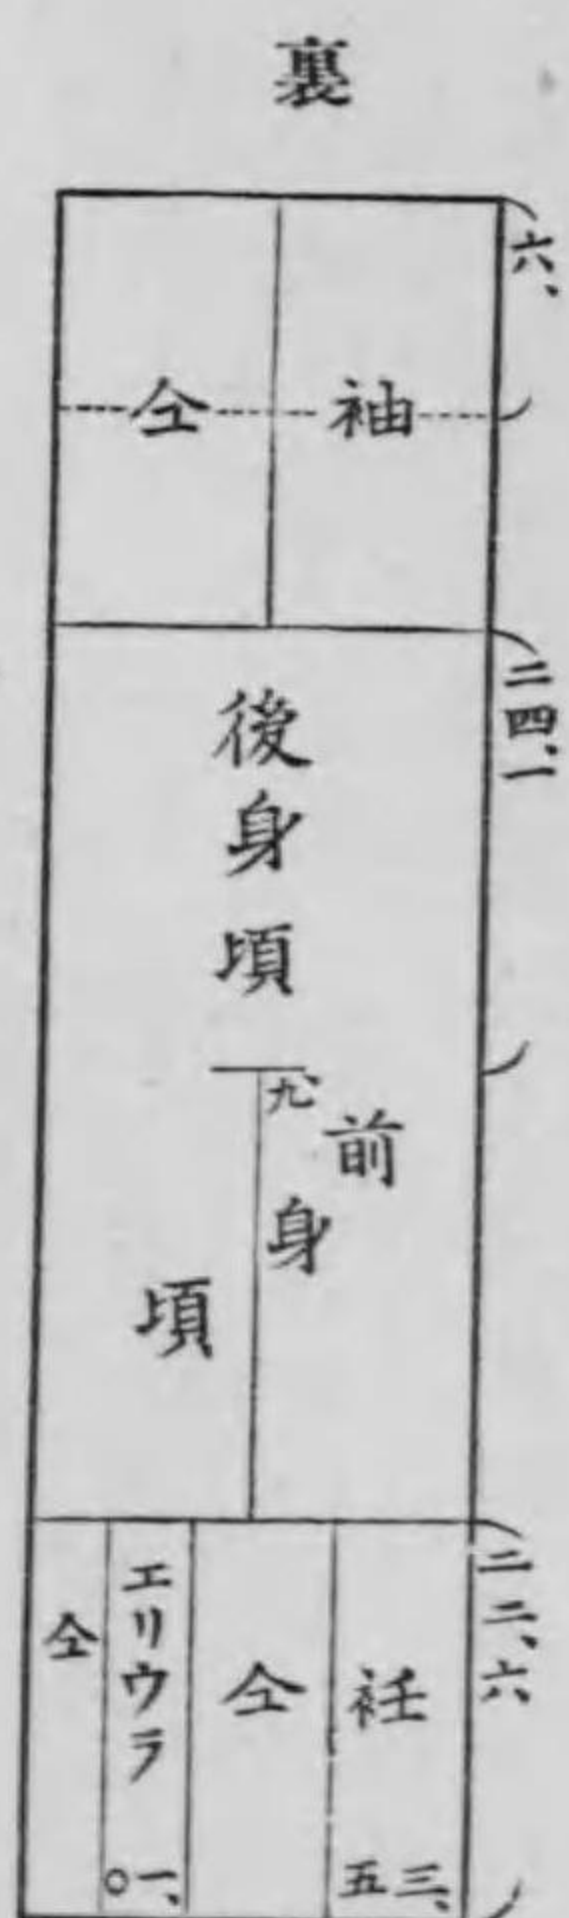 裏
六、
袖
仝
二四、一
後身頃
九、
前身頃
二二、六
衽
三、五
仝
エリウラ
一、〇
仝